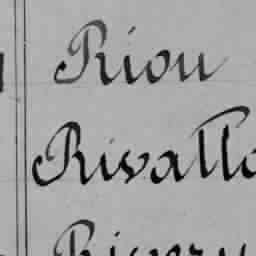 Riou
Rivallo